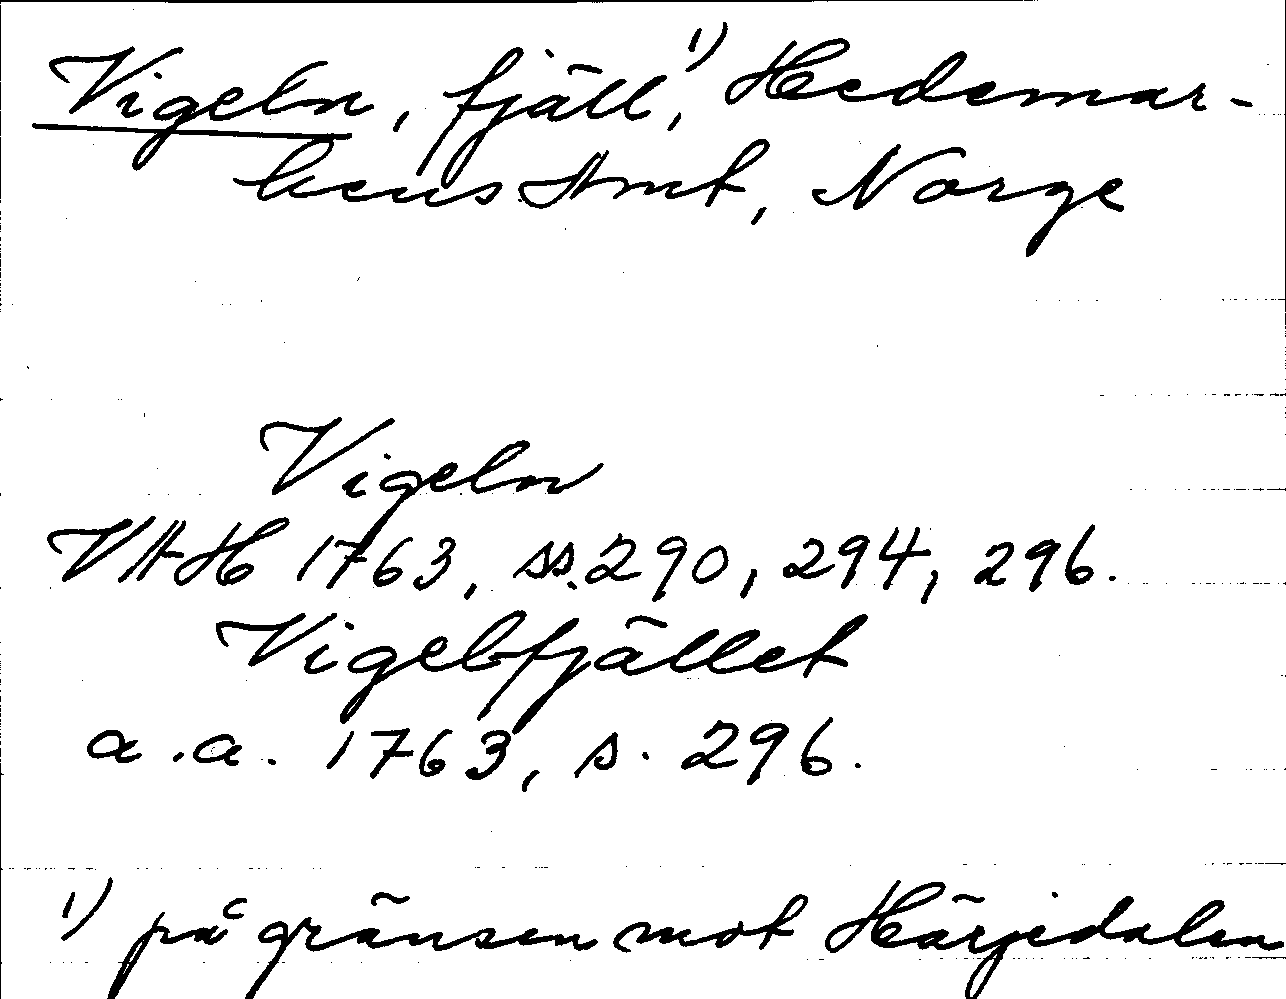 Vigeln, fjäll,¹⁾ Hedemar-
kens Amt, Norge
Vigeln
VAH 1763, ss. 290, 294, 296.
Vigelfjället
a.a. 1763, s. 296.
¹⁾ på gränsen mot Härjedalen